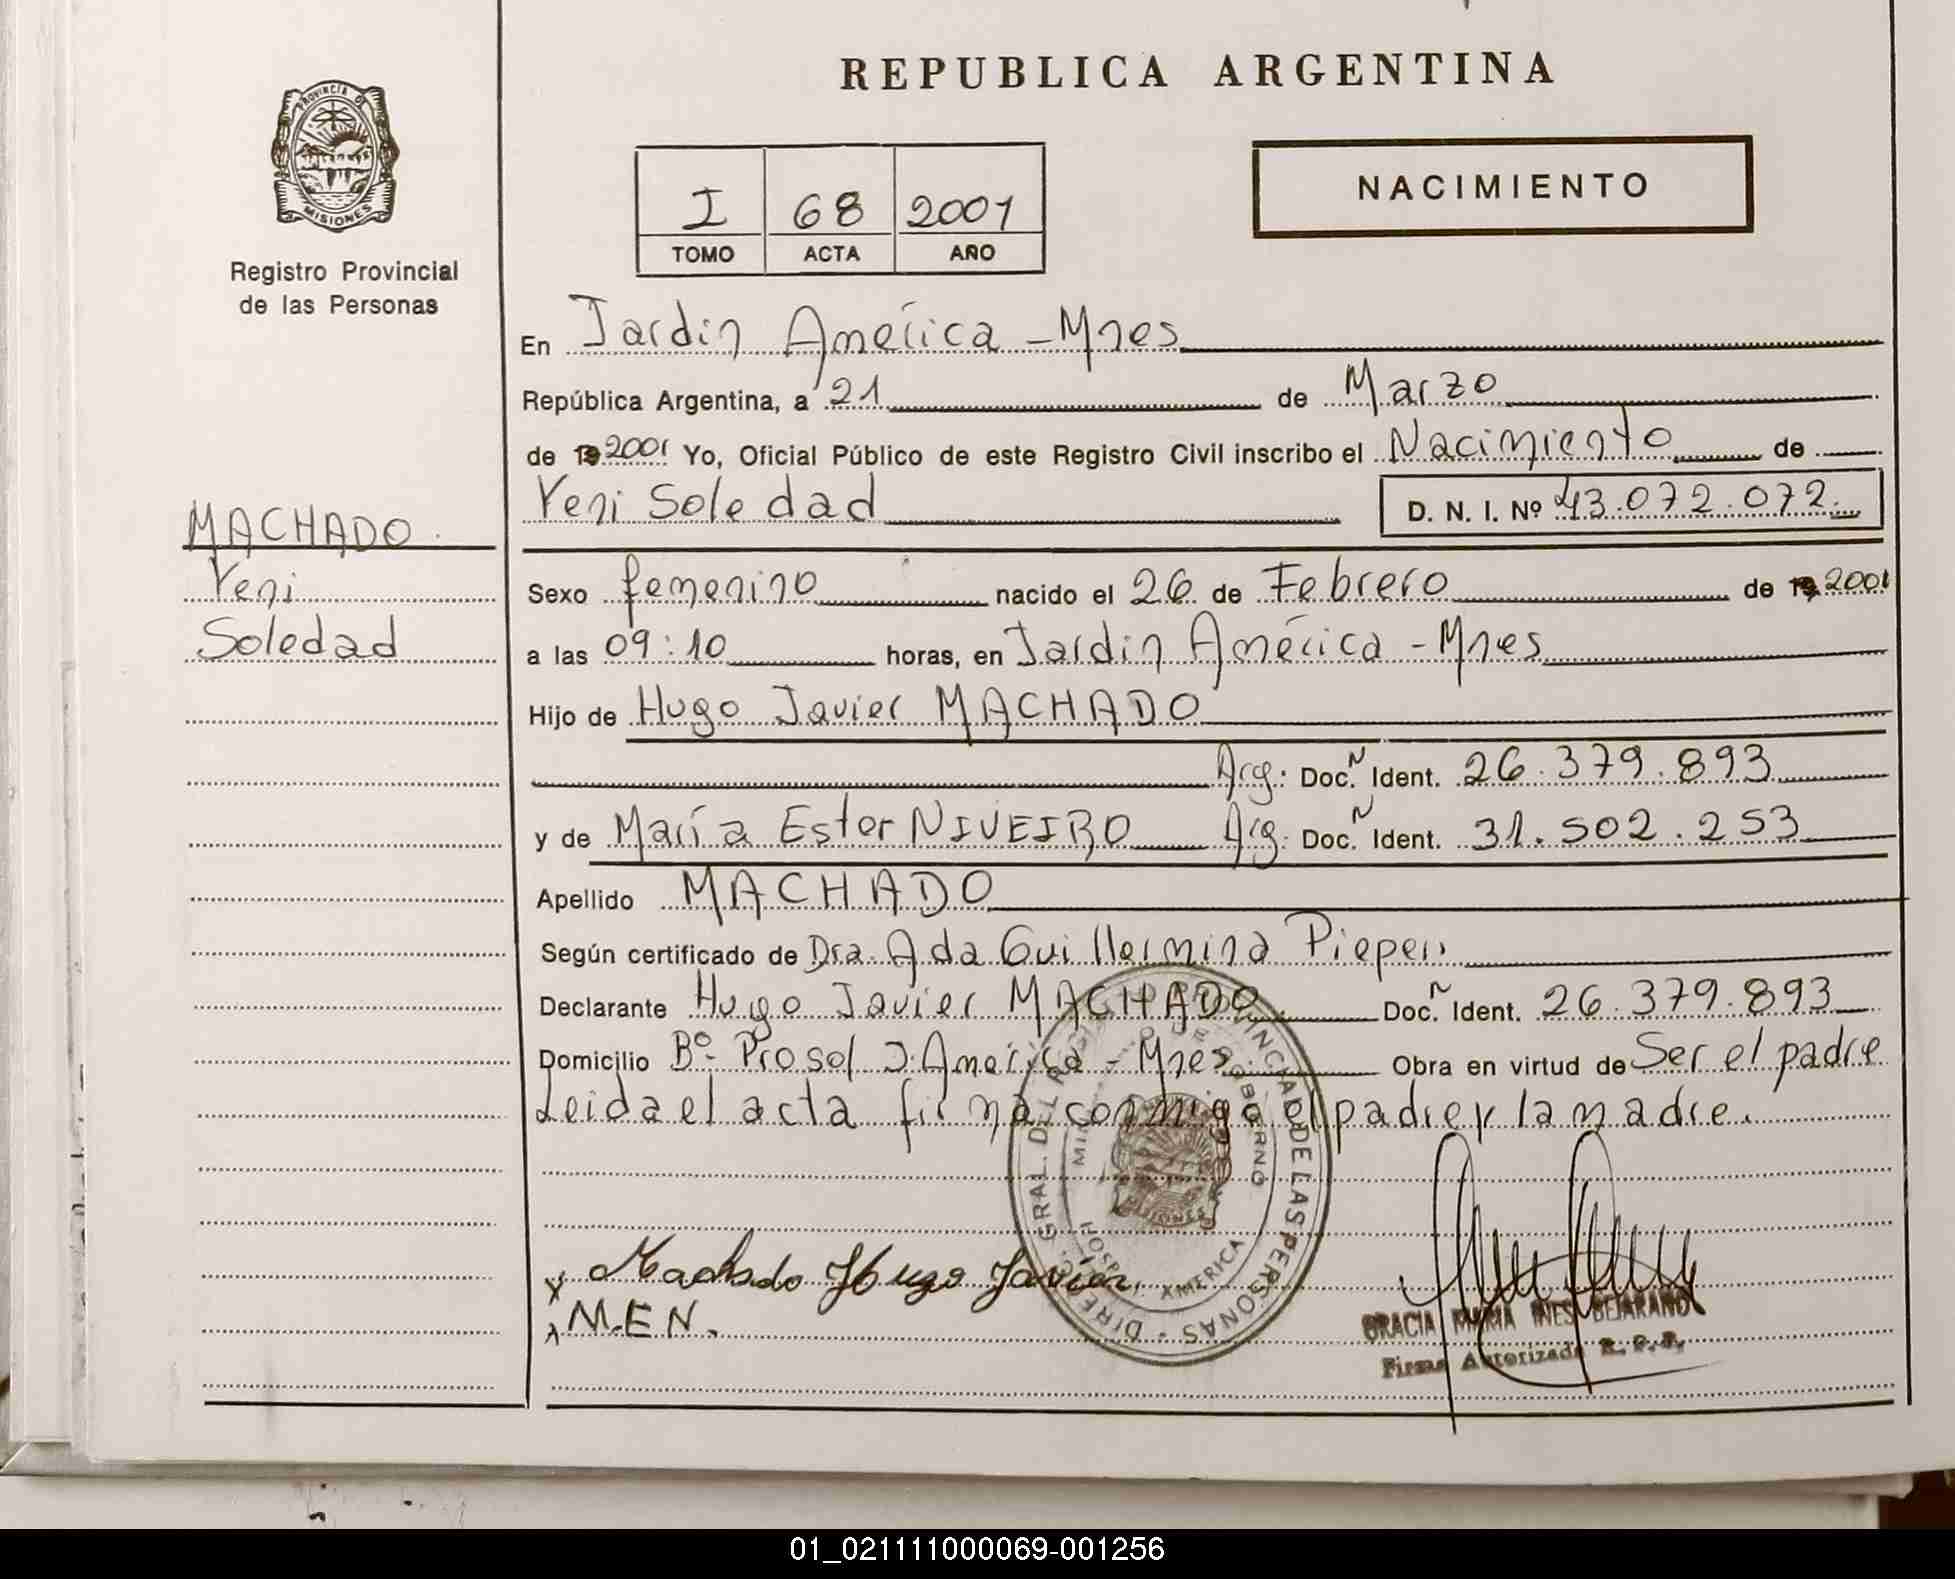 REPUBLICA ARGENTINA
PROVINCIA DE
MISIONES
Registro Provincial
de las Personas
I 68 2001
TOMO ACTA AÑO
NACIMIENTO
En Jardin América - Mnes
República Argentina, a 21 de Marzo
de 19 2001 Yo, Oficial Público de este Registro Civil inscribo el Nacimiento de
Yeni Soledad D. N. I. Nº 43.072.072.
MACHADO
Yeni
Soledad
Sexo femenino nacido el 26 de Febrero de 19 2001
a las 09:10 horas, en Jardin América - Mnes
Hijo de Hugo Javier MACHADO
Arg: Doc. N Ident. 26.379.893
y de María Ester NIVEIRO Arg. Doc. N Ident. 31.502.253
Apellido MACHADO
Según certificado de Dra. Ada Guillermina Pieper
Declarante Hugo Javier MACHADO Doc. N Ident. 26.379.893
Domicilio Bº- Prosol J. América - Mnes. Obra en virtud de Ser el padre
Leida el acta firma conmigo el padre y la madre.
DIREC. GRAL. DEL REGISTRO PROVINCIAL DE LAS PERSONAS
x Machado Hugo Javier
M.E.N.
GRACIA MARIA INES BEJARANO
Firma Autorizada R. P. P.
01_021111000069-001256